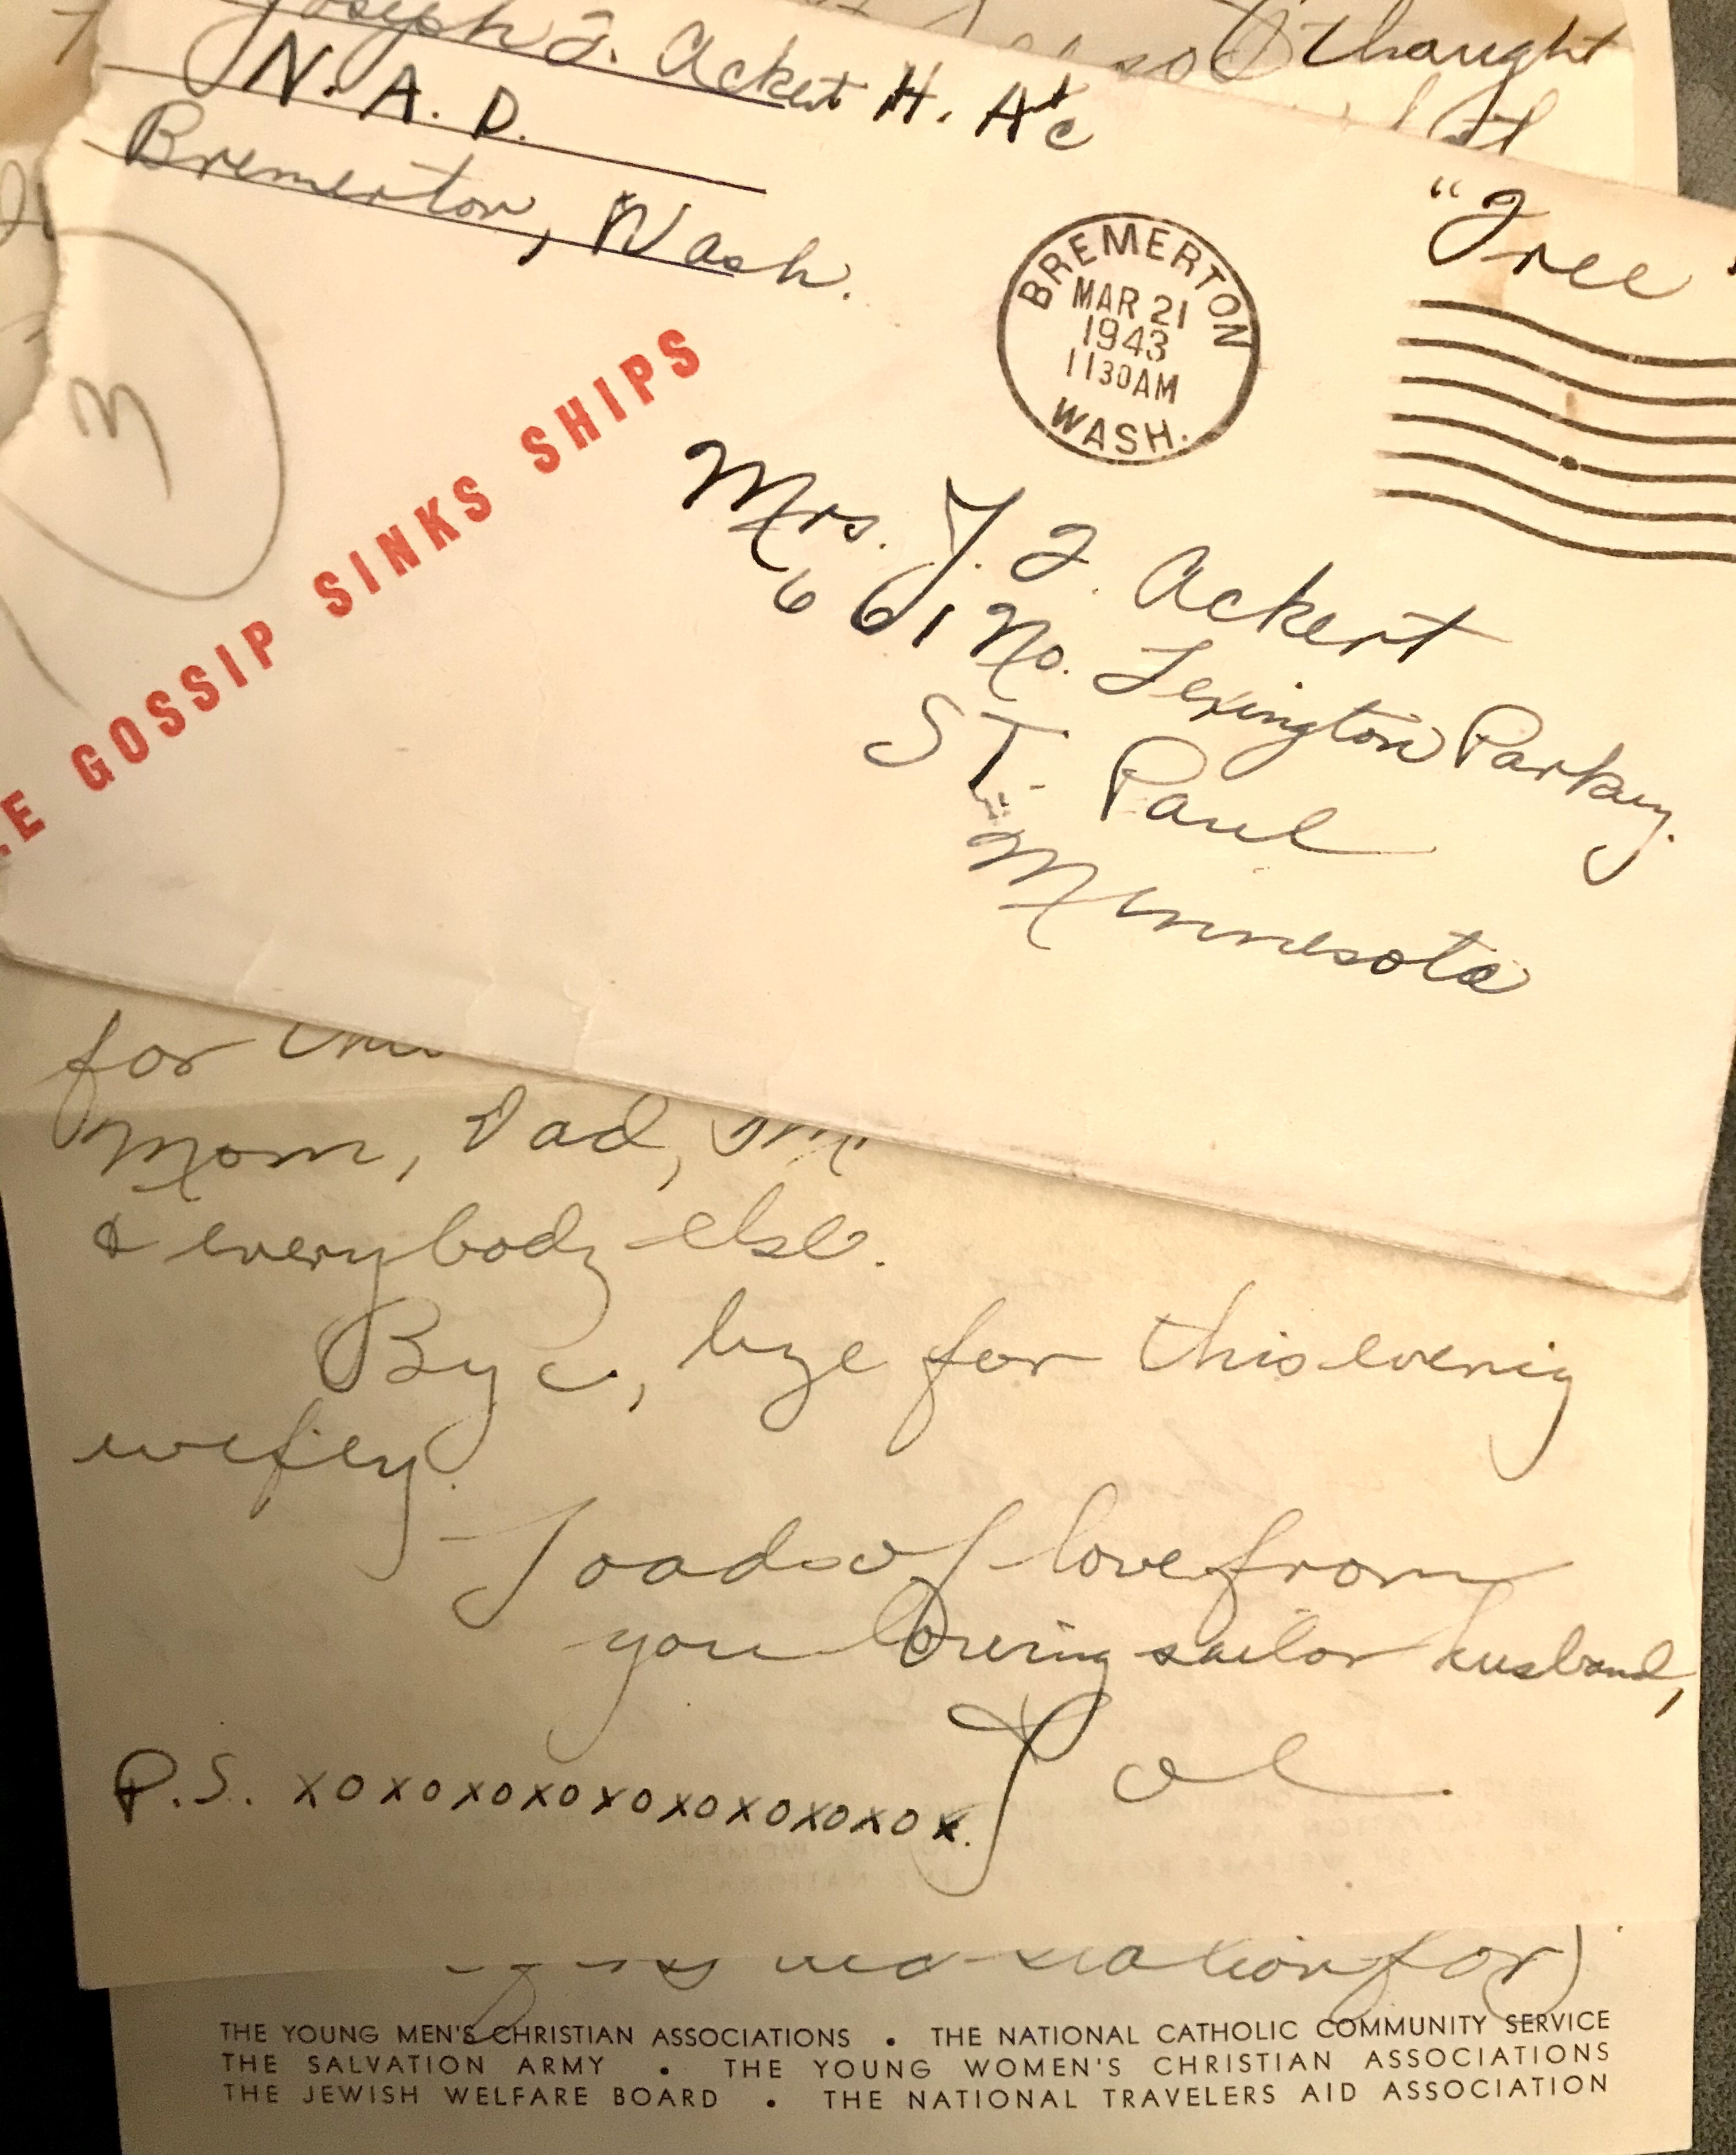 Joseph J. Ackert H. A 2/c
N. A. D.
Bremerton, Wash.
thought
"Free"
BREMERTON
MAR 21
1943
1130AM
WASH.
3
GOSSIP SINKS SHIPS
Mrs. J. J. Ackert
661 No. Lexington Parkwy.
ST. Paul
Minnesota
for
Mom, Dad,
& everybody else.
Bye, bye for this evenig
wifey.
Loads of love from
you loving sailor husband,
Joe.
P.S. xoxoxoxoxoxoxoxoxoxox.
station for)
THE YOUNG MEN'S CHRISTIAN ASSOCIATIONS • THE NATIONAL CATHOLIC COMMUNITY SERVICE
THE SALVATION ARMY • THE YOUNG WOMEN'S CHRISTIAN ASSOCIATIONS
THE JEWISH WELFARE BOARD • THE NATIONAL TRAVELERS AID ASSOCIATION